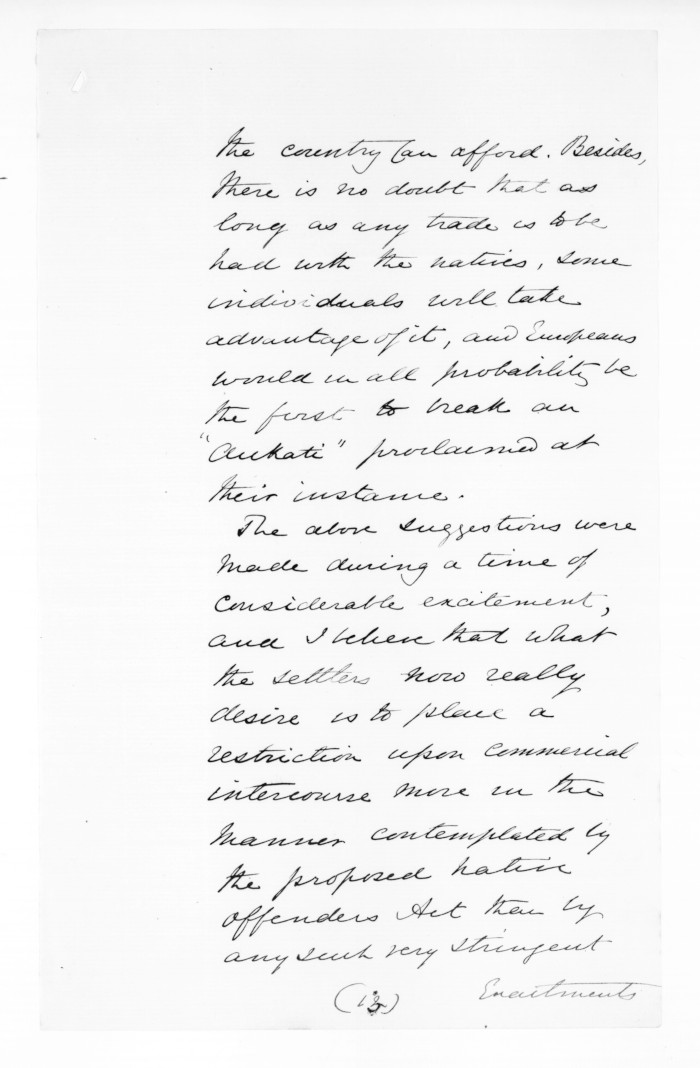 the country can afford. Besides,
there is no doubt that as
long as any trade is to be
had with the natives, some
individuals will take
advantage of it, and Europeans
would in all probability be
the first to break an
"Aukati" proclaimed at
their instance.
The above suggestions were
made during a time of
considerable excitement,
and I believe that what
the settlers now really
desire is to place a
restriction upon commercial
intercourse more in the
manner contemplated by
the proposed native
offenders Act than by
any such very stringent
Enactments
(13)